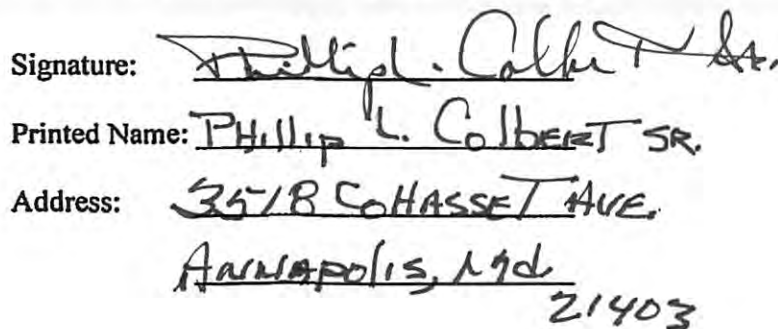 Signature: Phillip L. Colbert Sr.
Printed Name: PHillip L. ColbERT SR.
Address: 3518 CoHASSET AVE.
Annapolis, Md.
21403